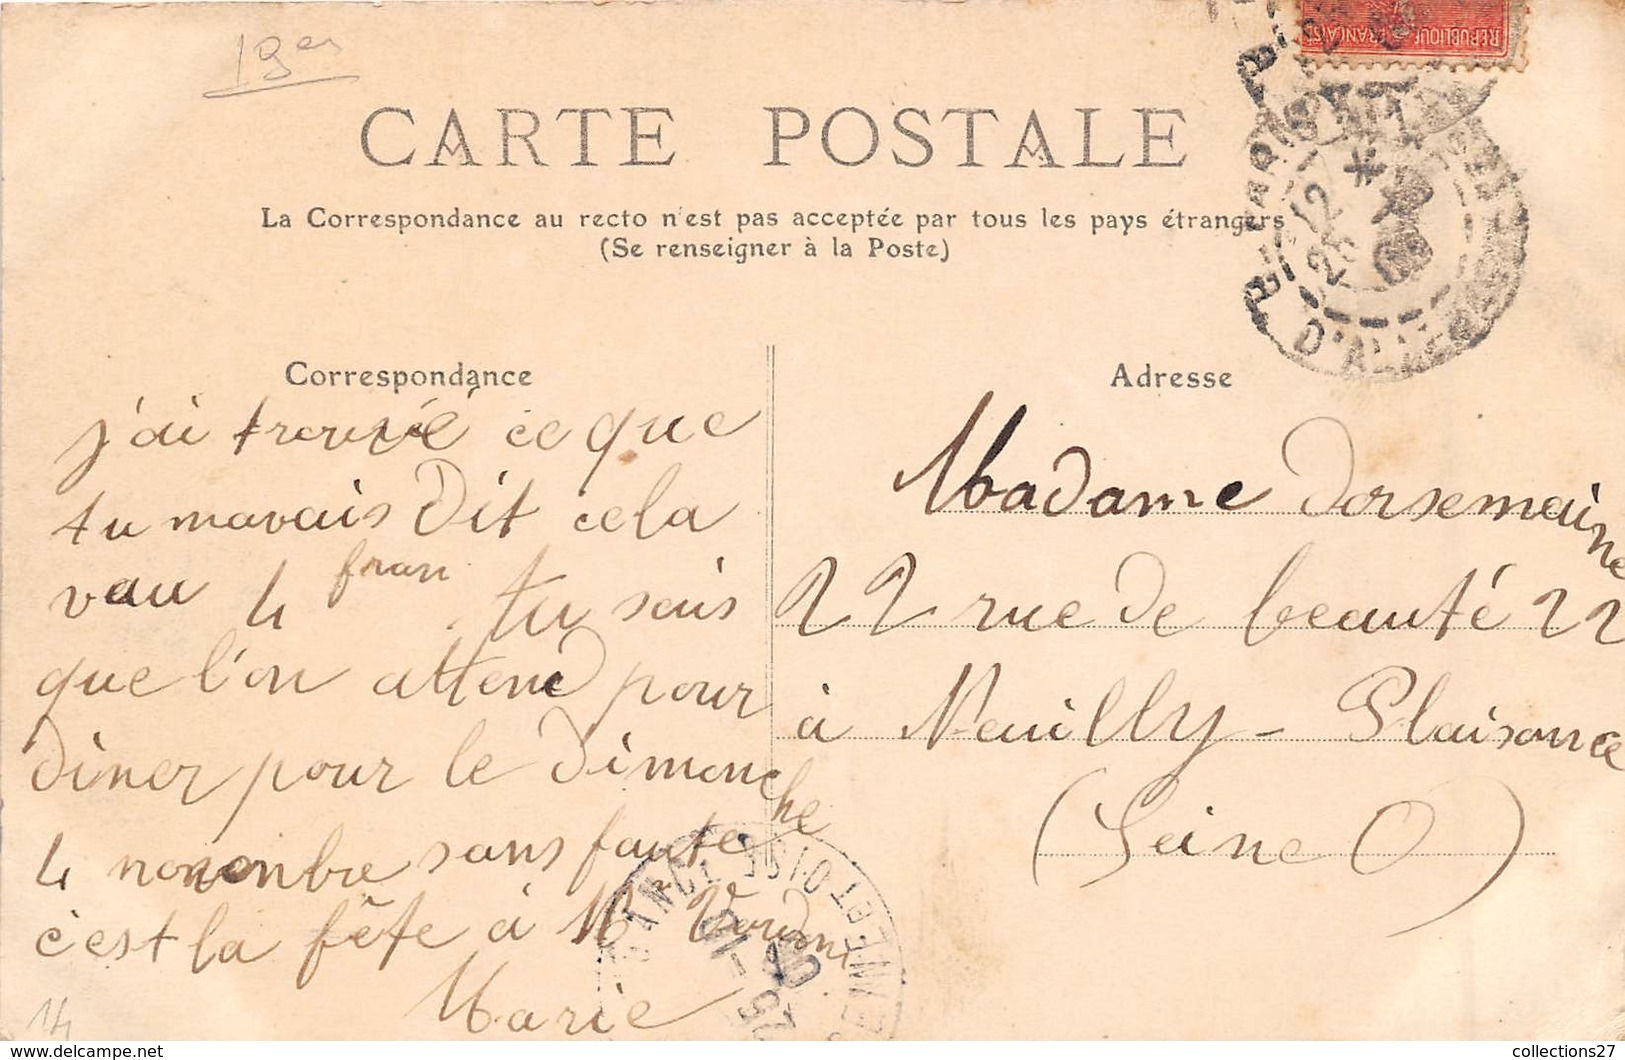 19es
RÉPUBLIQUE FRANÇAISE
CARTE POSTALE
La Correspondance au recto n'est pas acceptée par tous les pays étrangers
(Se renseigner à la Poste)
D'ALLEMAGNE
Correspondance
j'ai trouvé ce que
tu mavais Dit cela
vau 4 fran. tu sais
que l'on attend pour
diner pour le Dimanche
4 novenbre sans faute
c'est la fête à Mr
Marie
14
Adresse
Madame Dorsemaine
22 rue de beauté 22
à Neuilly - Plaisance
(Seine O)
SEINE-ET-OISE
collections27